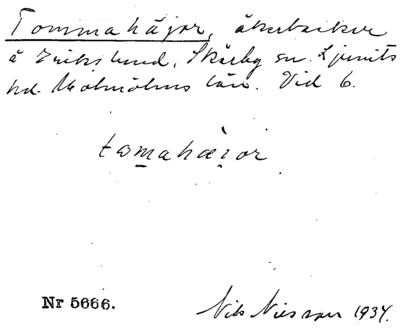 Tommahäjor, åkerbackar
å Erikslund, Skårby sn. Ljunits
hd. Malmöhus län. Vid 6.
tomahæjor
Nr 5666.
Nils Nilsson 1934.